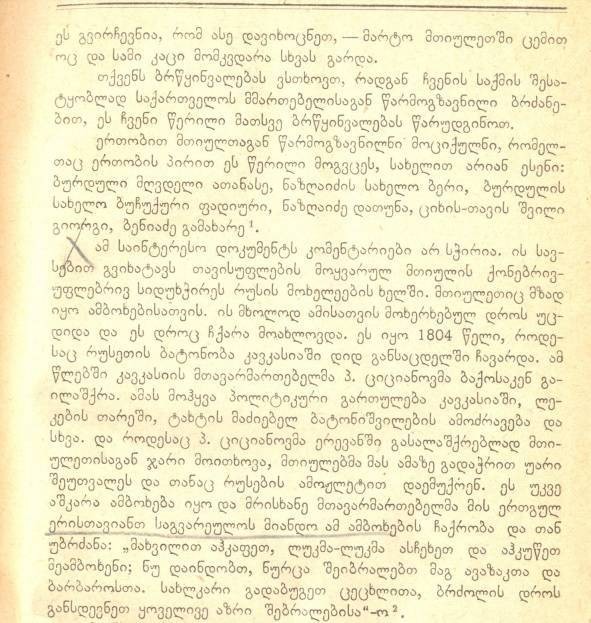 ეს გვირჩევნია, რომ ასე დავიხოცნეთ, — მარტო მთიულეთში ცემით
ოც და სამი კაცი მომკვდარა სხვას გარდა.
თქვენს ბრწყინვალებას ვსთხოვთ, რადგან ჩვენის საქმის შესა-
ტყობლად საქართველოს მმართებელისაგან წარმოგზავნილი ბრძანე-
ბით, ეს ჩვენი წერილი მათსვე ბრწყინვალებას წარუდგინოთ.
ერთობით მთიულთაგან წარმოგზავნილნი მოციქულნი, რომელ-
თაც ერთობის პირით ეს წერილი მოგვცეს, სახელით არიან ესენი:
ბურდული მღვდელი ათანასე, ნაზღაიძის სახელო ბერი, ბურდულის
სახელო ბუჩუქური ფადიური, ნაზღაიძე დათუნა, ციხის-თავის შვილი
გიორგი, ბენიაძე გამახარე¹.
ამ საინტერესო დოკუმენტს კომენტარიები არ სჭირია. ის სავ-
სებით გვიხატავს თავისუფლების მოყვარულ მთიულის ქონებრივ-
უფლებრივ სიდუხჭირეს რუსის მოხელეების ხელში. მთიულეთიც მზად
იყო ამბოხებისათვის. ის მხოლოდ ამისათვის მოხერხებულ დროს უც-
დიდა და ეს დროც ჩქარა მოახლოვდა. ეს იყო 1804 წელი, როდე-
საც რუსეთის ბატონობა კავკასიაში დიდ განსაცდელში ჩავარდა. ამ
წლებში კავკასიის მთავარმართებელმა პ. ციციანოვმა ბაქოსაკენ გა-
ილაშქრა. ამას მოჰყვა პოლიტიკური გართულება კავკასიაში, ლე-
კების თარეში, ტახტის მაძიებელ ბატონიშვილების ამოძრავება და
სხვა. და როდესაც პ. ციციანოვმა ერევანში გასალაშქრებლად მთი-
ულეთისაგან ჯარი მოითხოვა, მთიულებმა მას ამაზე გადაჭრით უარი
შეუთვალეს და თანაც რუსების ამოჟლეტით დაემუქრენ. ეს უკვე
აშკარა ამბოხება იყო და მრისხანე მთავარმართებელმა მის ერთგულ
ერისთავიანთ საგვარეულოს მიანდო ამ ამბოხების ჩაქრობა და თან
უბრძანა: „მახვილით აჰკაფეთ, ლუკმა-ლუკმა ასჩეხეთ და აჰკუწეთ
მეამბოხენი; ნუ დაინდობთ, ნურცა შეიბრალებთ მაგ ავაზაკთა და
ბარბაროსთა. სახლკარი გადაბუგეთ ცეცხლითა, ბრძოლის დროს
განსდევნეთ ყოველივე აზრი შებრალებისა“-ო².